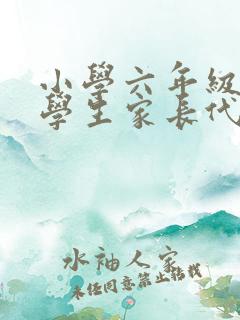 小學六年級
學生家長代
水袖人家
未经同意禁止转载